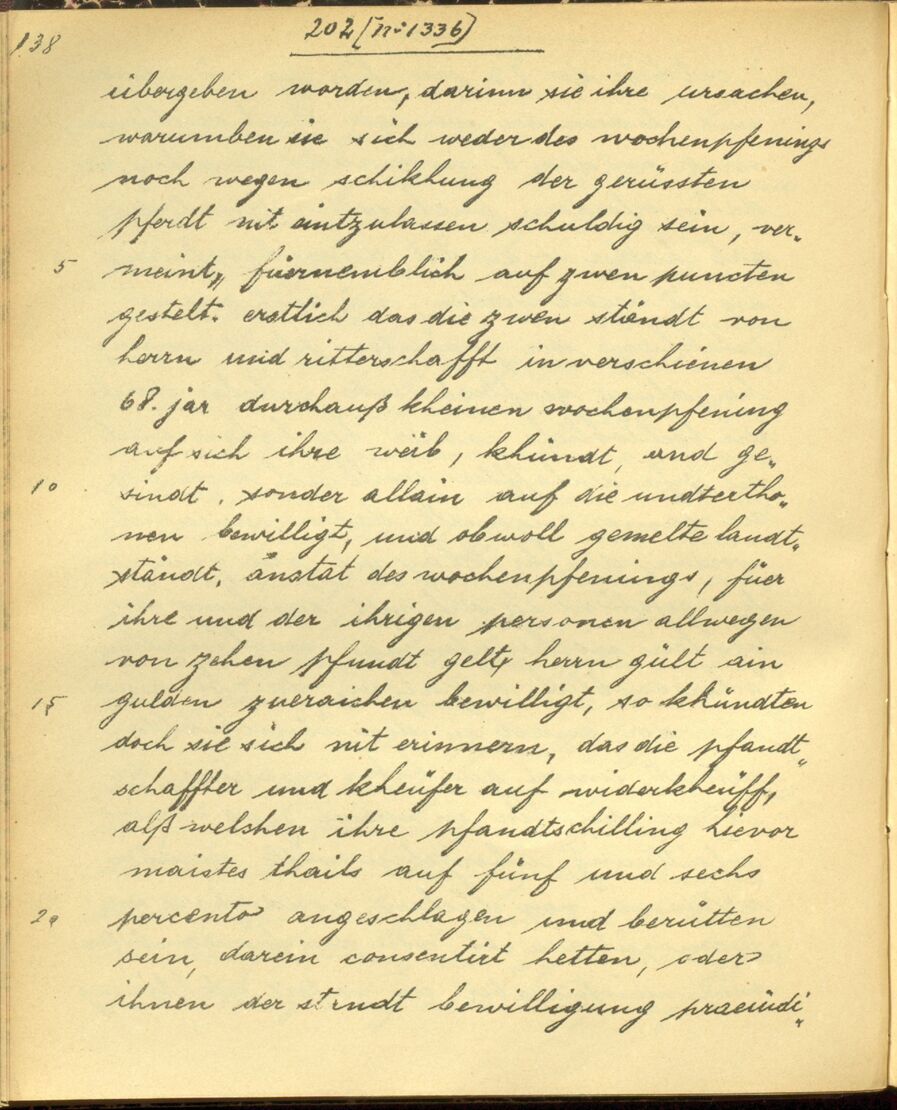 138
202 [Nº 1336]
übergeben worden, darinn sie ihre ursachen,
warumben sie sich weder des wochenpfenings
noch wegen schikhung der gerüssten
pferdt nit eintzulassen schuldig sein, ver„
5 meint„ füernemblich auf zwen puncten
gestelt. erstlich das die zwen ständt von
herrn und ritterschafft in verschienen
68. jar durchauß kheinen wochenpfening
auf sich ihre weib, khündt, und ge„
10 sindt, sonder allain auf die undtertho„
nen bewilligt, und obwoll gemelte landt„
ständt, anstat des wochenpfenings, füer
ihre und der ihrigen personen allwegen
von zehen pfundt gelt, herrn gült ain
15 gulden zueraichen bewilligt, so khündten
doch sie sich nit erinnern, das die pfandt„
schaffter und kheüfer auf widerkheüff,
alß welchen ihre pfandtschilling hievor
maistes thails auf fünf und sechs
20 percento angeschlagen und berütten
sein, darein consentirt hetten, oder
ihnen der standt bewilligung praeiudi„